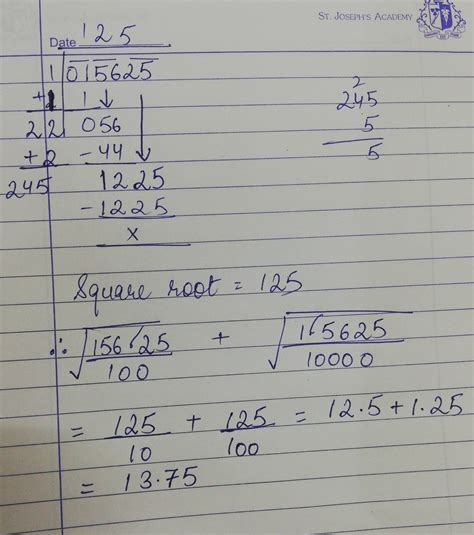 ST. JOSEPH'S ACADEMY
Date 125
1 015625
+1 1
22 056
+2 -44
245 1225
-1225
x
2
245
5
5
Square root = 125
∴ √156.25/100 + √1.5625/10000
= 125/10 + 125/100 = 12.5+1.25
= 13.75